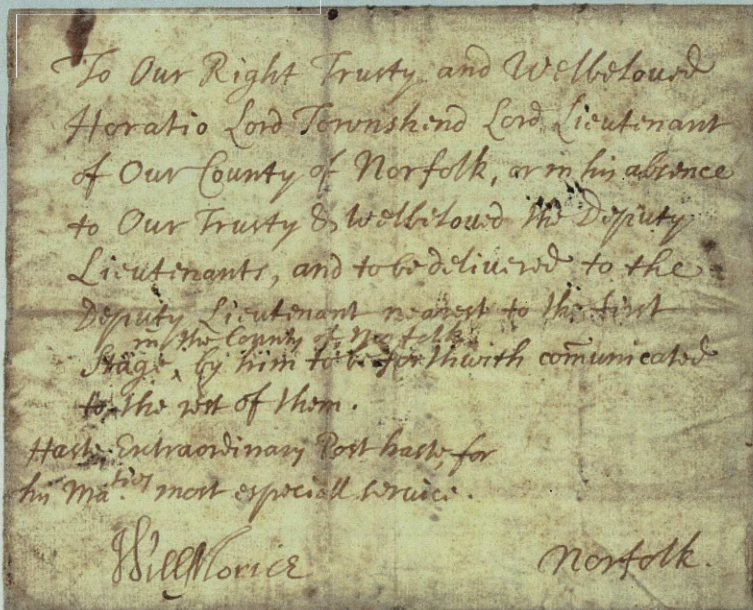 To Our Right Trusty and Welbeloved
Horatio Lord Townshend Lord Lieutenant
of Our County of Norfolk, or in his absence
to Our Trusty & Welbeloved the Deputy
Lieutenants, and to be delivered to the
Deputy Lieutenant nearest to the first
in the County of Norfolk
Stage, by him to be forthwith com̄unicated
to the rest of them.
Haste, Extraordinary Post haste, for
his Ma:ties most especiall service.
Will Morice
Norfolk.